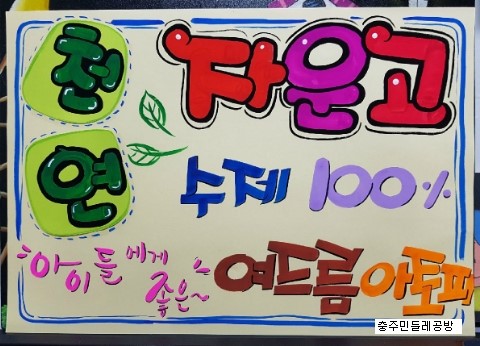 천연
자운고
수제 100%
아이들에게 좋은~
여드름 아토피
충주민들레공방